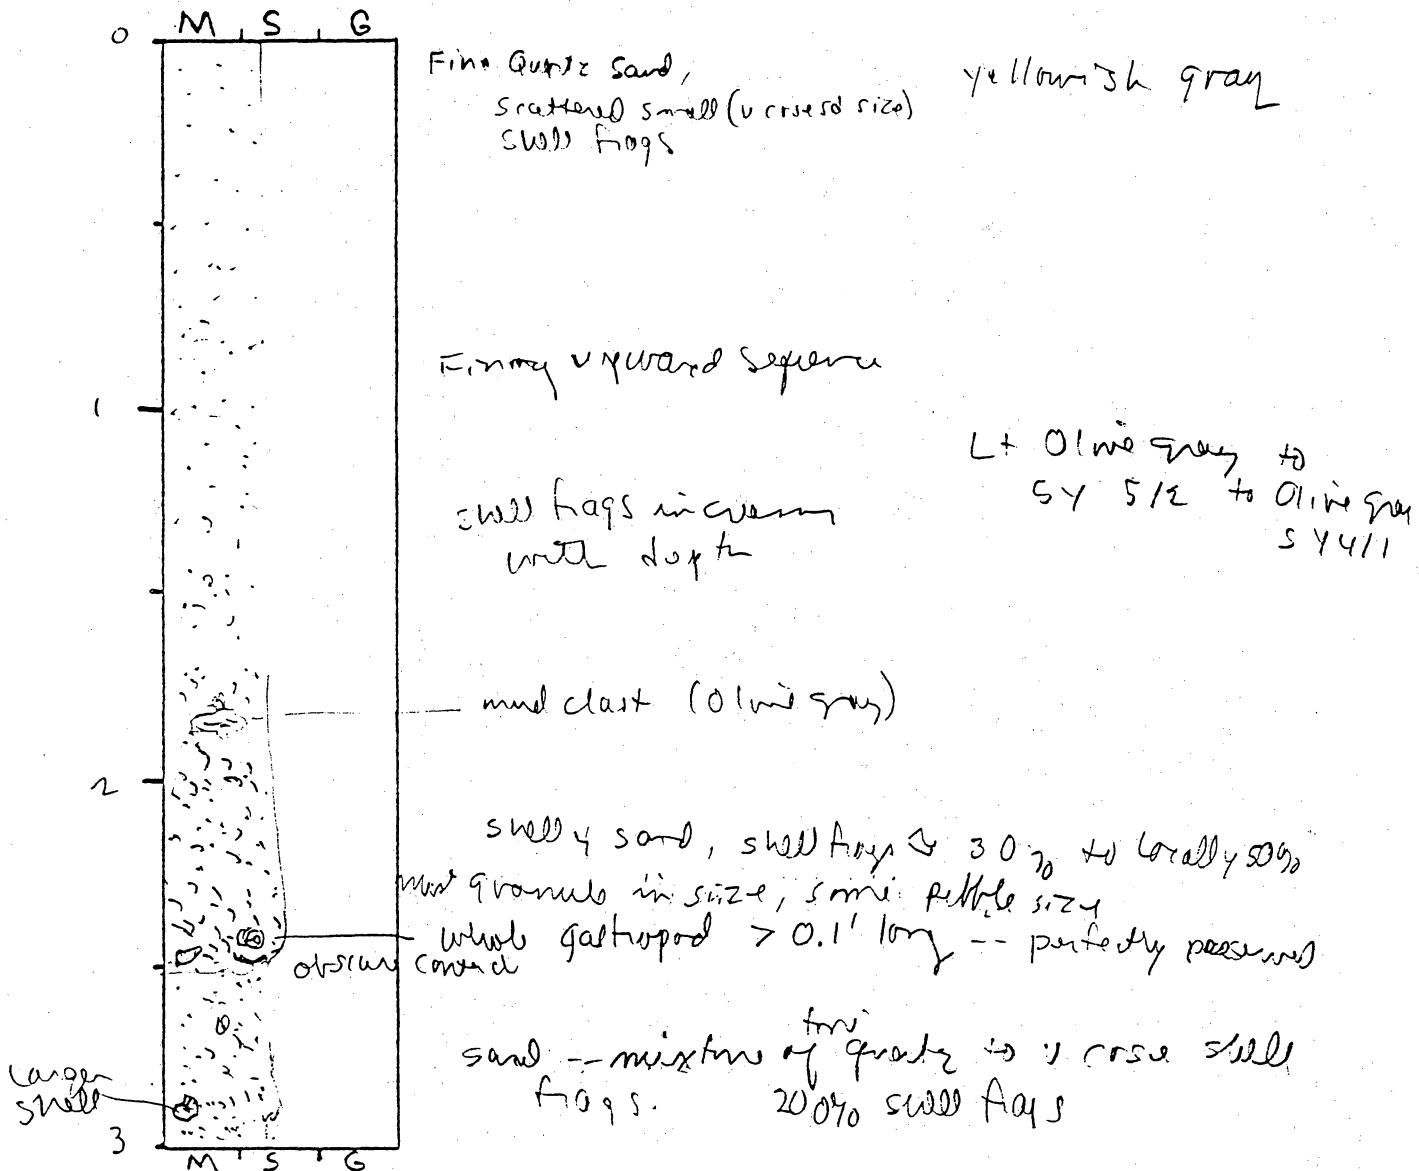 M S G
0
Fine Quartz Sand,
scattered small (v crse sd size)
shell frags
yellowish gray
Fining upward sequence
1
Lt Olive gray to
5Y 5/2 to Olive gray
5Y4/1
shell frags increasing
with depth
mud clast (Olive gray)
2
shelly sand, shell frags 30% to locally 50%
most granule in size, some pebble size
whole gastropod > 0.1' long -- perfectly preserved
obscure contact
fine
sand -- mixture of quartz to v crse shell
frags. 20% shell frags
Larger
shell
3
M S G